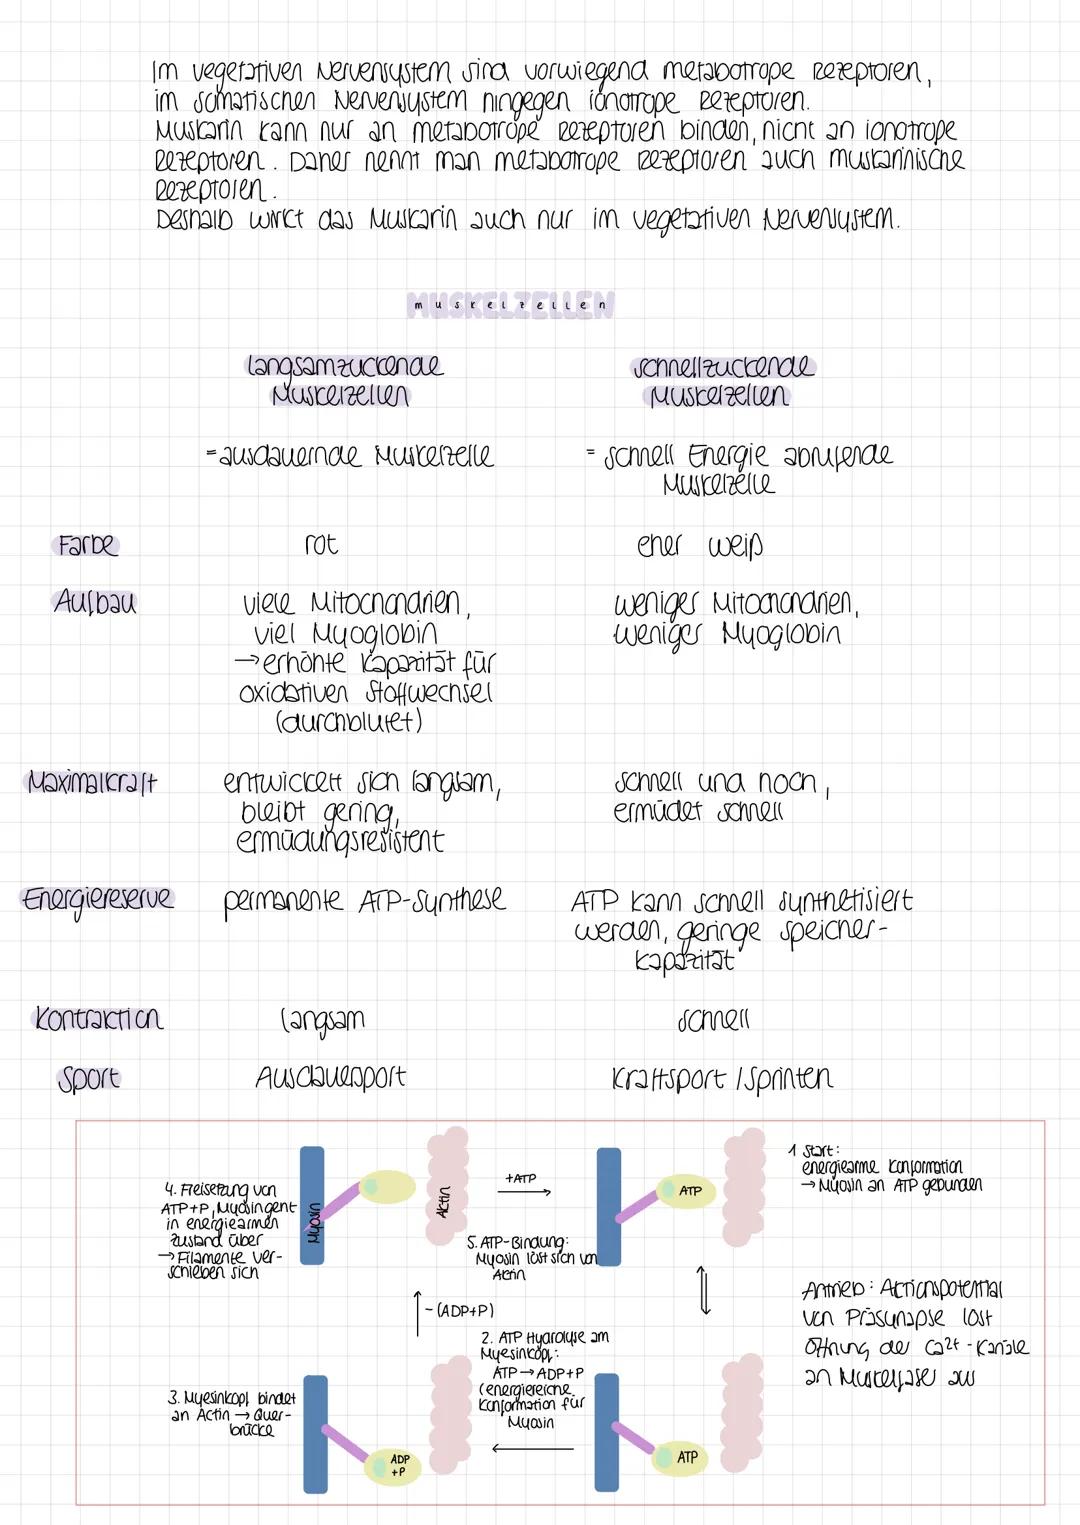 Im vegetativen Nervensystem sind vorwiegend metabotrope Rezeptoren,
im somatischen Nervensystem hingegen ionotrope Rezeptoren.
Muskarin kann nur an metabotrope Rezeptoren binden, nicht an ionotrope
Rezeptoren. Daher nennt man metabotrope Rezeptoren auch muskarinische
Rezeptoren.
Deshalb wirkt das Muskarin auch nur im vegetativen Nervensystem.
MUSKELZELLEN
muskelzellen
langsamzuckende
Muskelzellen
schnellzuckende
Muskelzellen
=ausdauernde Muskelzelle
= schnell Energie abrufende
Muskelzelle
Farbe
rot
eher weiß
Aufbau
viele Mitochondrien,
viel Myoglobin
→ erhöhte Kapazität für
oxidativen Stoffwechsel
(durchblutet)
weniger Mitochondrien,
weniger Myoglobin
Maximalkraft
entwickelt sich langsam,
bleibt gering,
ermüdungsresistent
schnell und hoch,
ermüdet schnell
Energiereserve
permanente ATP-Synthese
ATP kann schnell synthetisiert
werden, geringe Speicher-
kapazität
Kontraktion
langsam
schnell
Sport
Ausdauersport
Kraftsport / Sprinten
4. Freisetzung von
ATP+P, Myosin geht
in energiearmen
Zustand über
→ Filamente ver-
schieben sich
Myosin
Aktin
+ATP
ATP
1 Start:
energiearme Konformation
→ Myosin an ATP gebunden
5. ATP-Bindung:
Myosin löst sich von
Aktin
Antrieb: Aktionspotential
von Präsynapse löst
Öffnung der Ca2+-Kanäle
an Muskelfaser aus
- (ADP+P)
2. ATP Hydrolyse am
Myosinkopf:
ATP → ADP+P
(energiereiche
Konformation für
Myosin
3. Myosinkopf bindet
an Actin → Quer-
brücke
ADP
+P
ATP